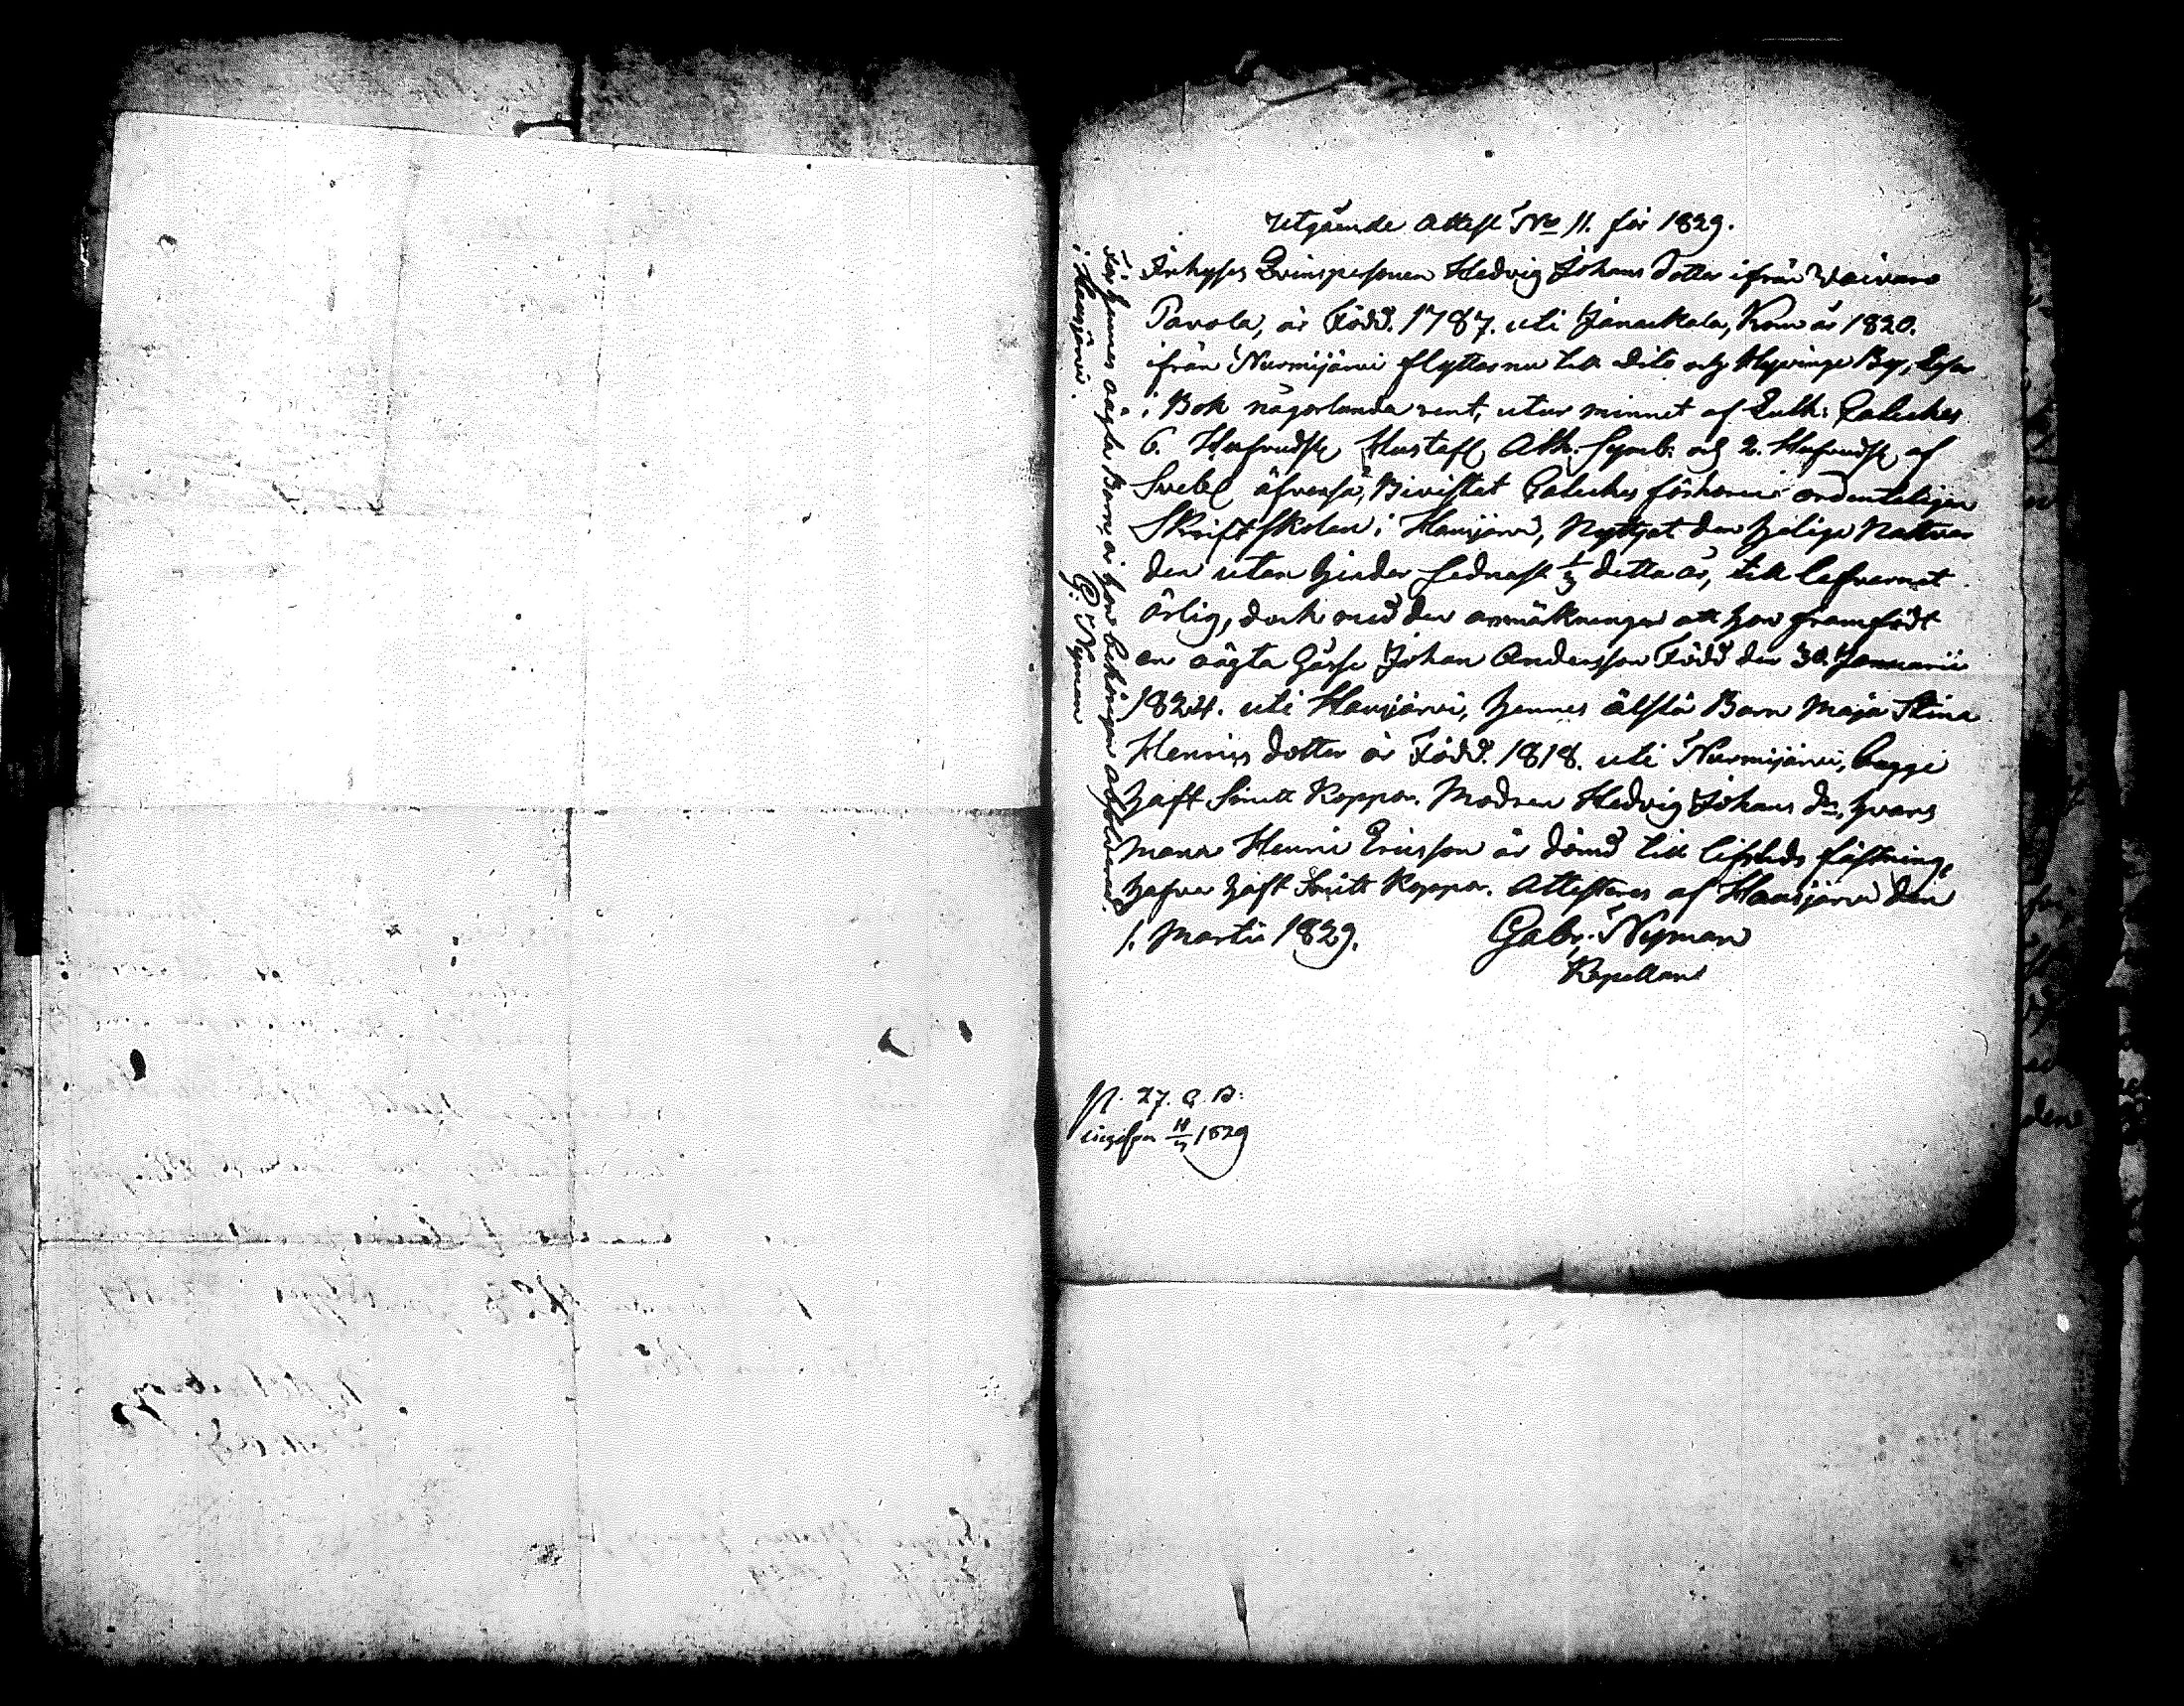 Utgående Attest No 11. för 1829.
Inhyses Qvinspersonen Hedvig Johans dotter ifrån Vaivaro
Pavola, är Född. 1787. uti Janackala, Kom år 1820.
ifrån Nurmijärvi flyttar nu till dito och Hyvinge By, Läser
i Bok någorlunda rent, utur minnet af Luth: Cateches
6. Hufvudst Hustafl Ath. Symb: och 2. Hufvudst af
Sveb: äfvenså, Bivistat Catechesförhören ordenteligen
Skriftskolan i Hausjärvi, Nyttjat den helige Nattvar
den utan hinder sednast 1/3 detta år, till lefvernet
ärlig, dock med den anmärkningen att hon framfödt
en oägta Gosse Johan Andersson Född den 30. Januarii
1824. uti Hausjärvi, hennes älsta Barn Maja Stina
Henrics dotter är Född. 1818. uti Nurmijärvi, begge
haft Smitt Koppor. Modren Hedvig Johans dr, hvars
Mann Henric Ericsson är dömd till lifstids fästning,
hafver haft Smitt Koppor. Attesteras af Hausjärvi den
1. Martii 1829. Gabr: Nyman
Kapellan
För hennes oägta Barn är hon behörigen absolverad
i Hausjärvi. G: Nyman
N. 27. a. B:
ingifven 11/3 1829